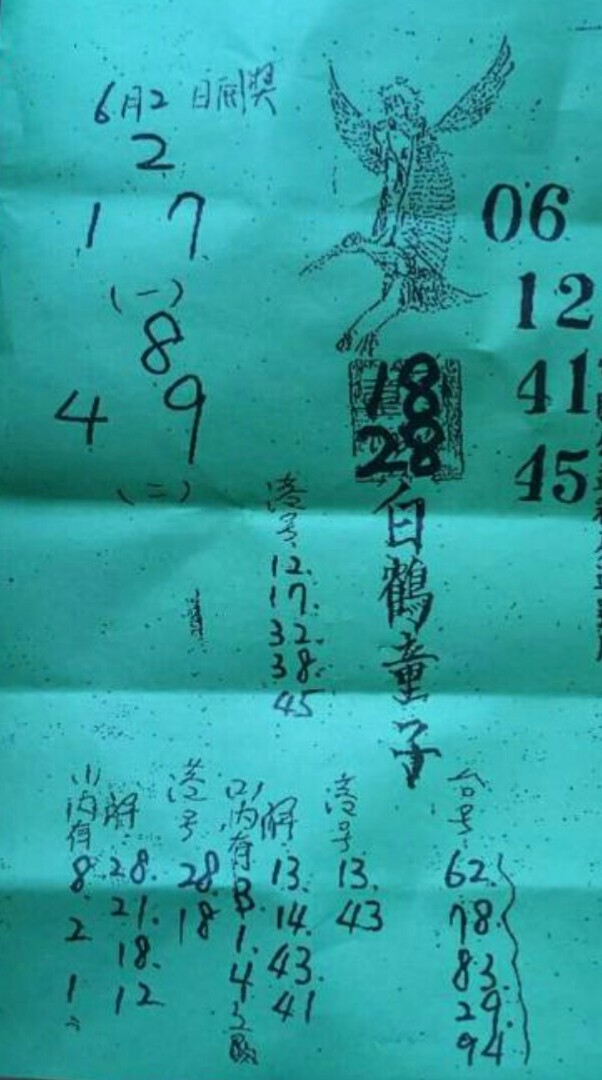 6月2日開獎
2
1 7
(一)
8
4 9
(二)
06
12
41
45
18
28
白鶴童子
港号
12.
17.
32.
38.
45
(1)內有
8
2
1
解
28.
21.
18.
12
港号
28
18
(2)內有
3.
1.
4
解
13.
14.
43.
41
港号
13.
43
台号
62.
78.
83.
29.
94